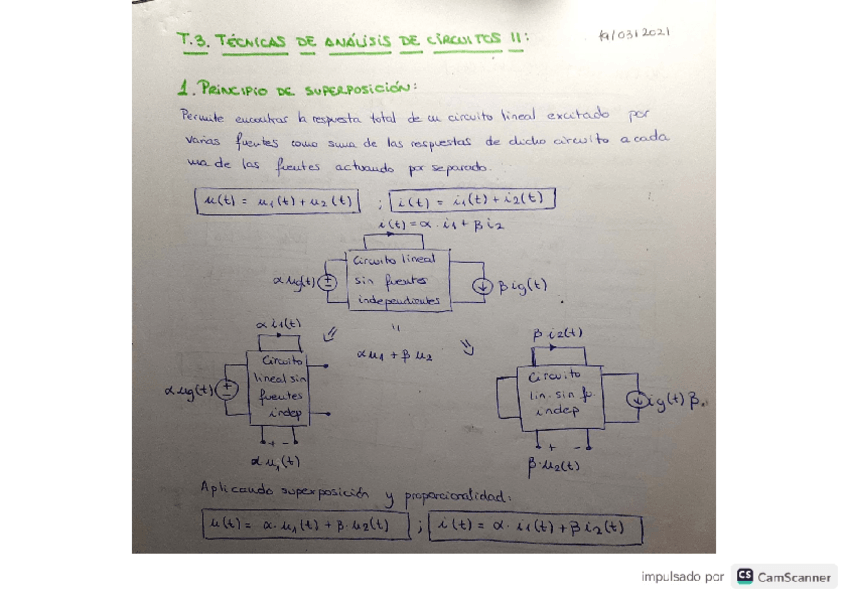 T.3. TÉCNICAS DE ANÁLISIS DE CIRCUITOS II:
19/03/2021
1. PRINCIPIO DE SUPERPOSICIÓN:
Permite encontrar la respuesta total de un circuito lineal excitado por
varias fuentes como suma de las respuestas de dicho circuito a cada
una de las fuentes actuando por separado.
u(t) = u1(t) + u2(t) ; i(t) = i1(t) + i2(t)
i(t) = α · i1 + β i2
Circuito lineal
sin fuentes
independientes
α ug(t)
β ig(t)
α i1(t)
"
α u1 + β u2
β i2(t)
Circuito
lineal sin
fuentes
indep
α ug(t)
+ -
α u1(t)
Circuito
lin. sin fu
indep
ig(t) β.
+ -
β · u2(t)
Aplicando superposición y proporcionalidad:
u(t) = α · u1(t) + β · u2(t) ; i(t) = α · i1(t) + β i2(t)
impulsado por CS CamScanner